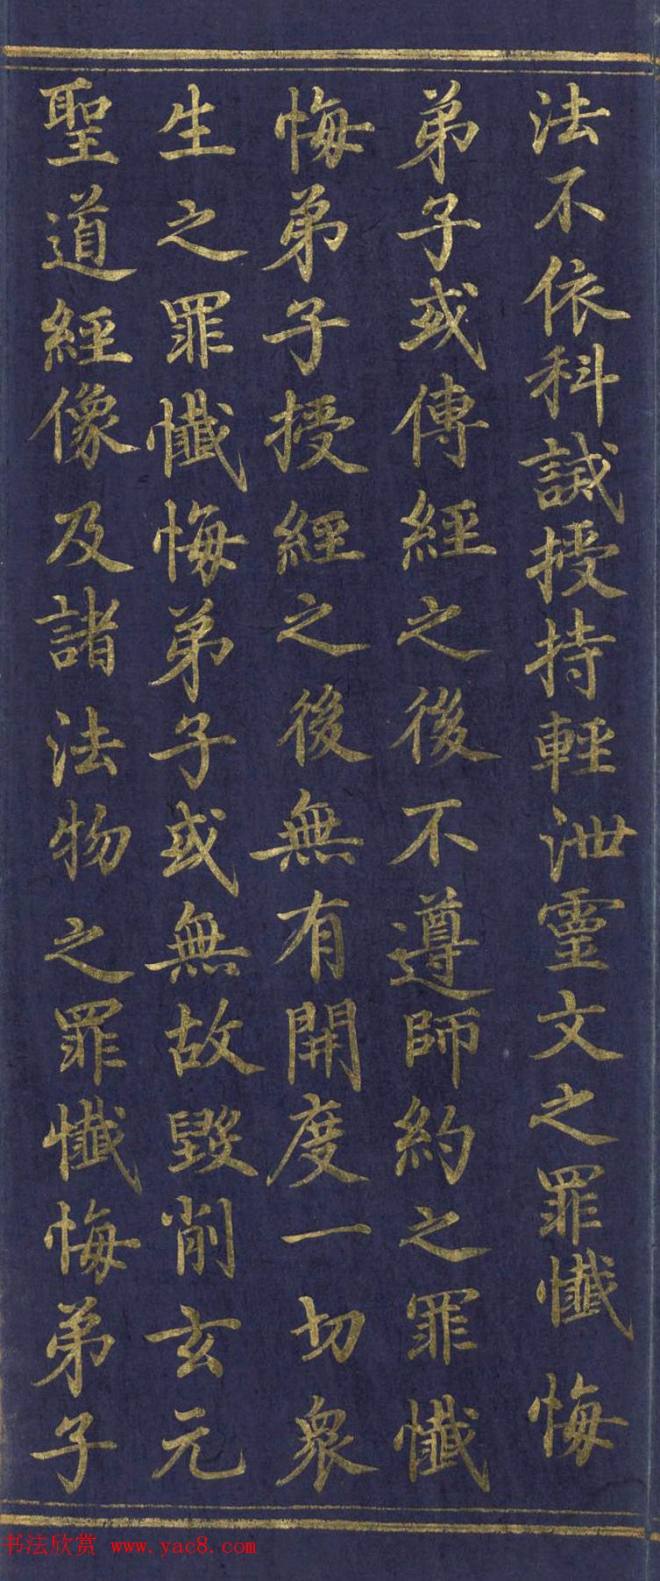 法不依科誡授持輕泄靈文之罪懺悔
弟子或傳經之後不遵師約之罪懺
悔弟子授經之後無有開度一切衆
生之罪懺悔弟子或無故毀削玄元
聖道經像及諸法物之罪懺悔弟子
书法欣赏 www.yac8.com